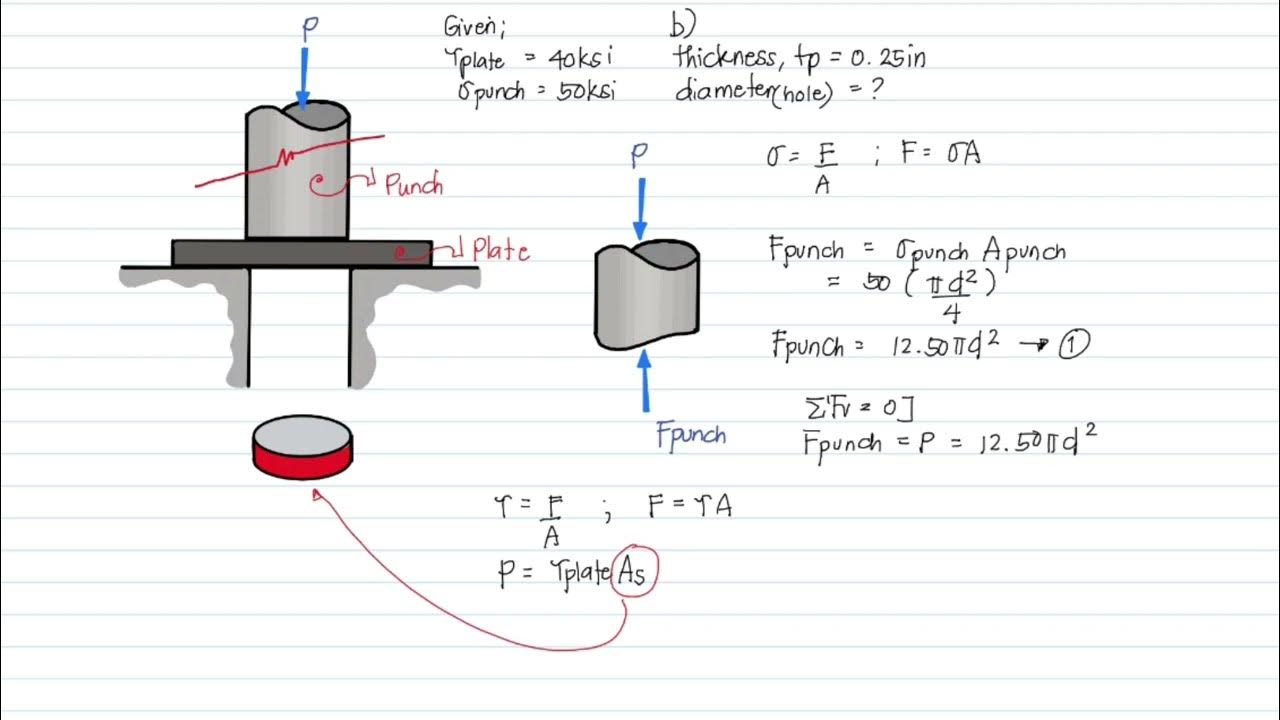 P
Given;
τplate = 40ksi
σpunch = 50ksi
b)
thickness, tp = 0.25in
diameter(hole) = ?
Punch
Plate
P
Fpunch
σ = F/A ; F = σA
Fpunch = σpunch Apunch
= 50 (πd²/4)
Fpunch = 12.50πd² → ①
ΣFv = 0]
Fpunch = P = 12.50πd²
τ = F/A ; F = τA
P = τplate As